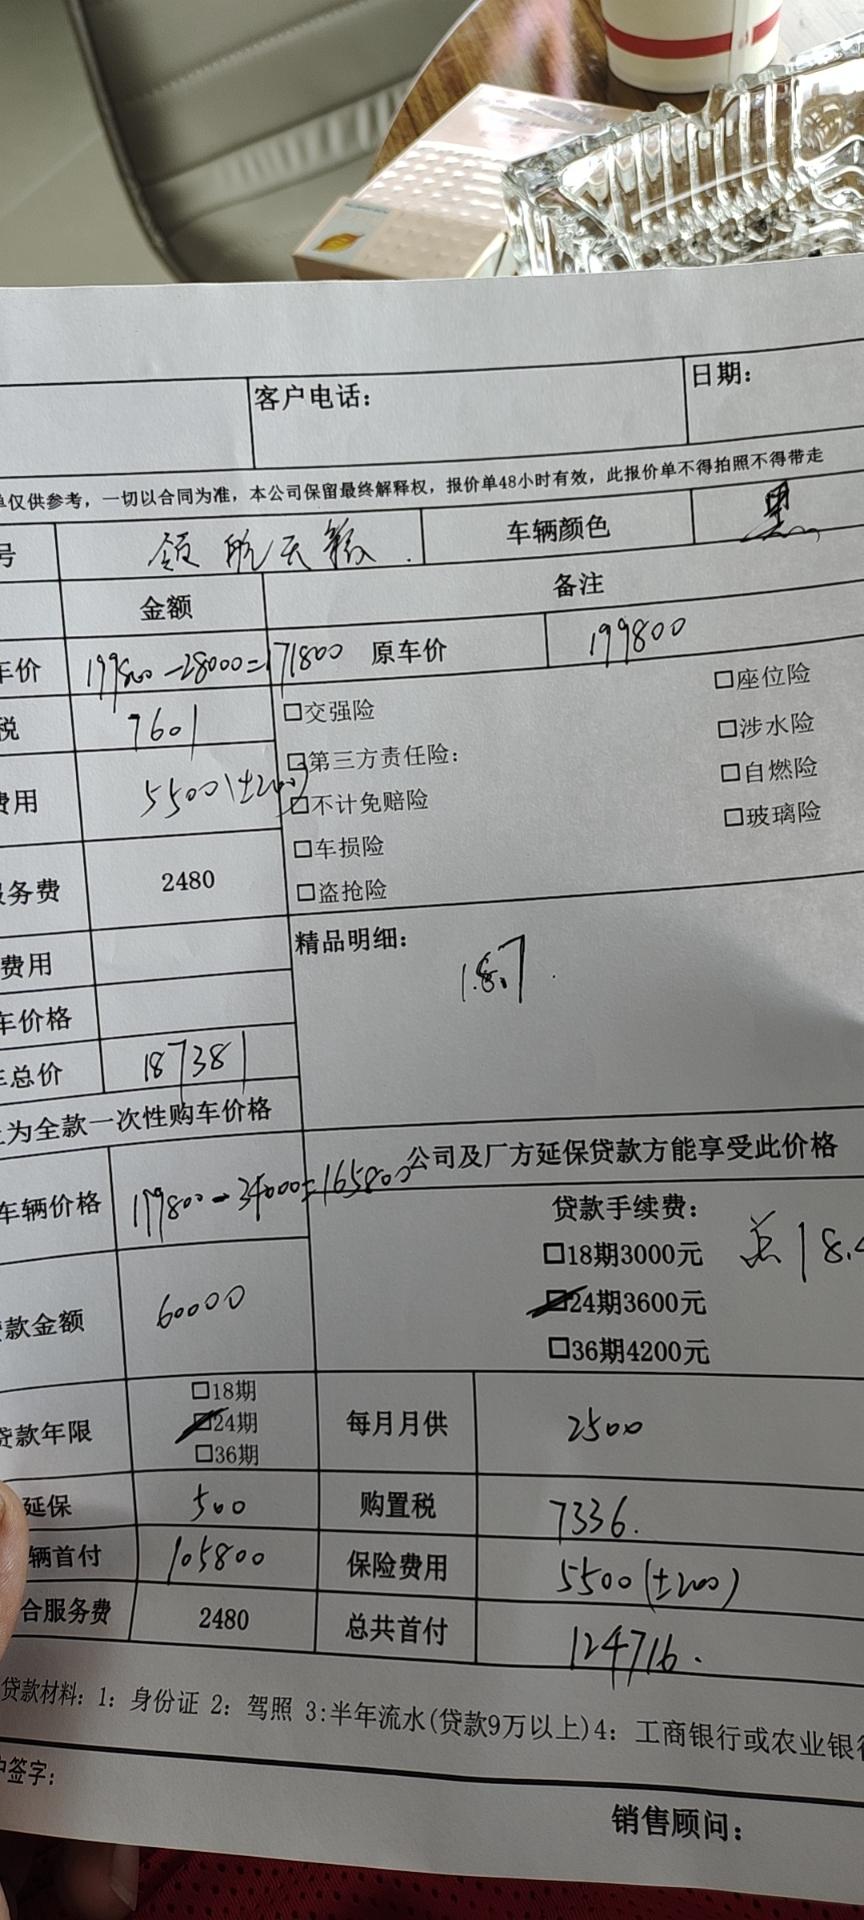 客户电话：
日期：
单仅供参考，一切以合同为准，本公司保留最终解释权，报价单48小时有效，此报价单不得拍照不得带走
号 领航天籁 . 车辆颜色 黑
金额 备注
车价 199800-28000=171800 原车价 199800
税 7601
□交强险 □座位险
费用 5500(±200)
□第三方责任险： □涉水险
□不计免赔险 □自燃险
□车损险 □玻璃险
服务费 2480
□盗抢险
费用
精品明细： 18.7
车价格
车总价 187381
上为全款一次性购车价格
公司及厂方延保贷款方能享受此价格
车辆价格 199800-34000=165800
贷款手续费：
□18期3000元 总18.4
□24期3600元
□36期4200元
贷款金额 60000
□18期
贷款年限 □24期 每月月供 2500
□36期
延保 500 购置税 7336.
辆首付 105800 保险费用 5500(±200)
合服务费 2480 总共首付 124716.
贷款材料：1：身份证 2：驾照 3:半年流水(贷款9万以上)4：工商银行或农业银行
户签字：
销售顾问：